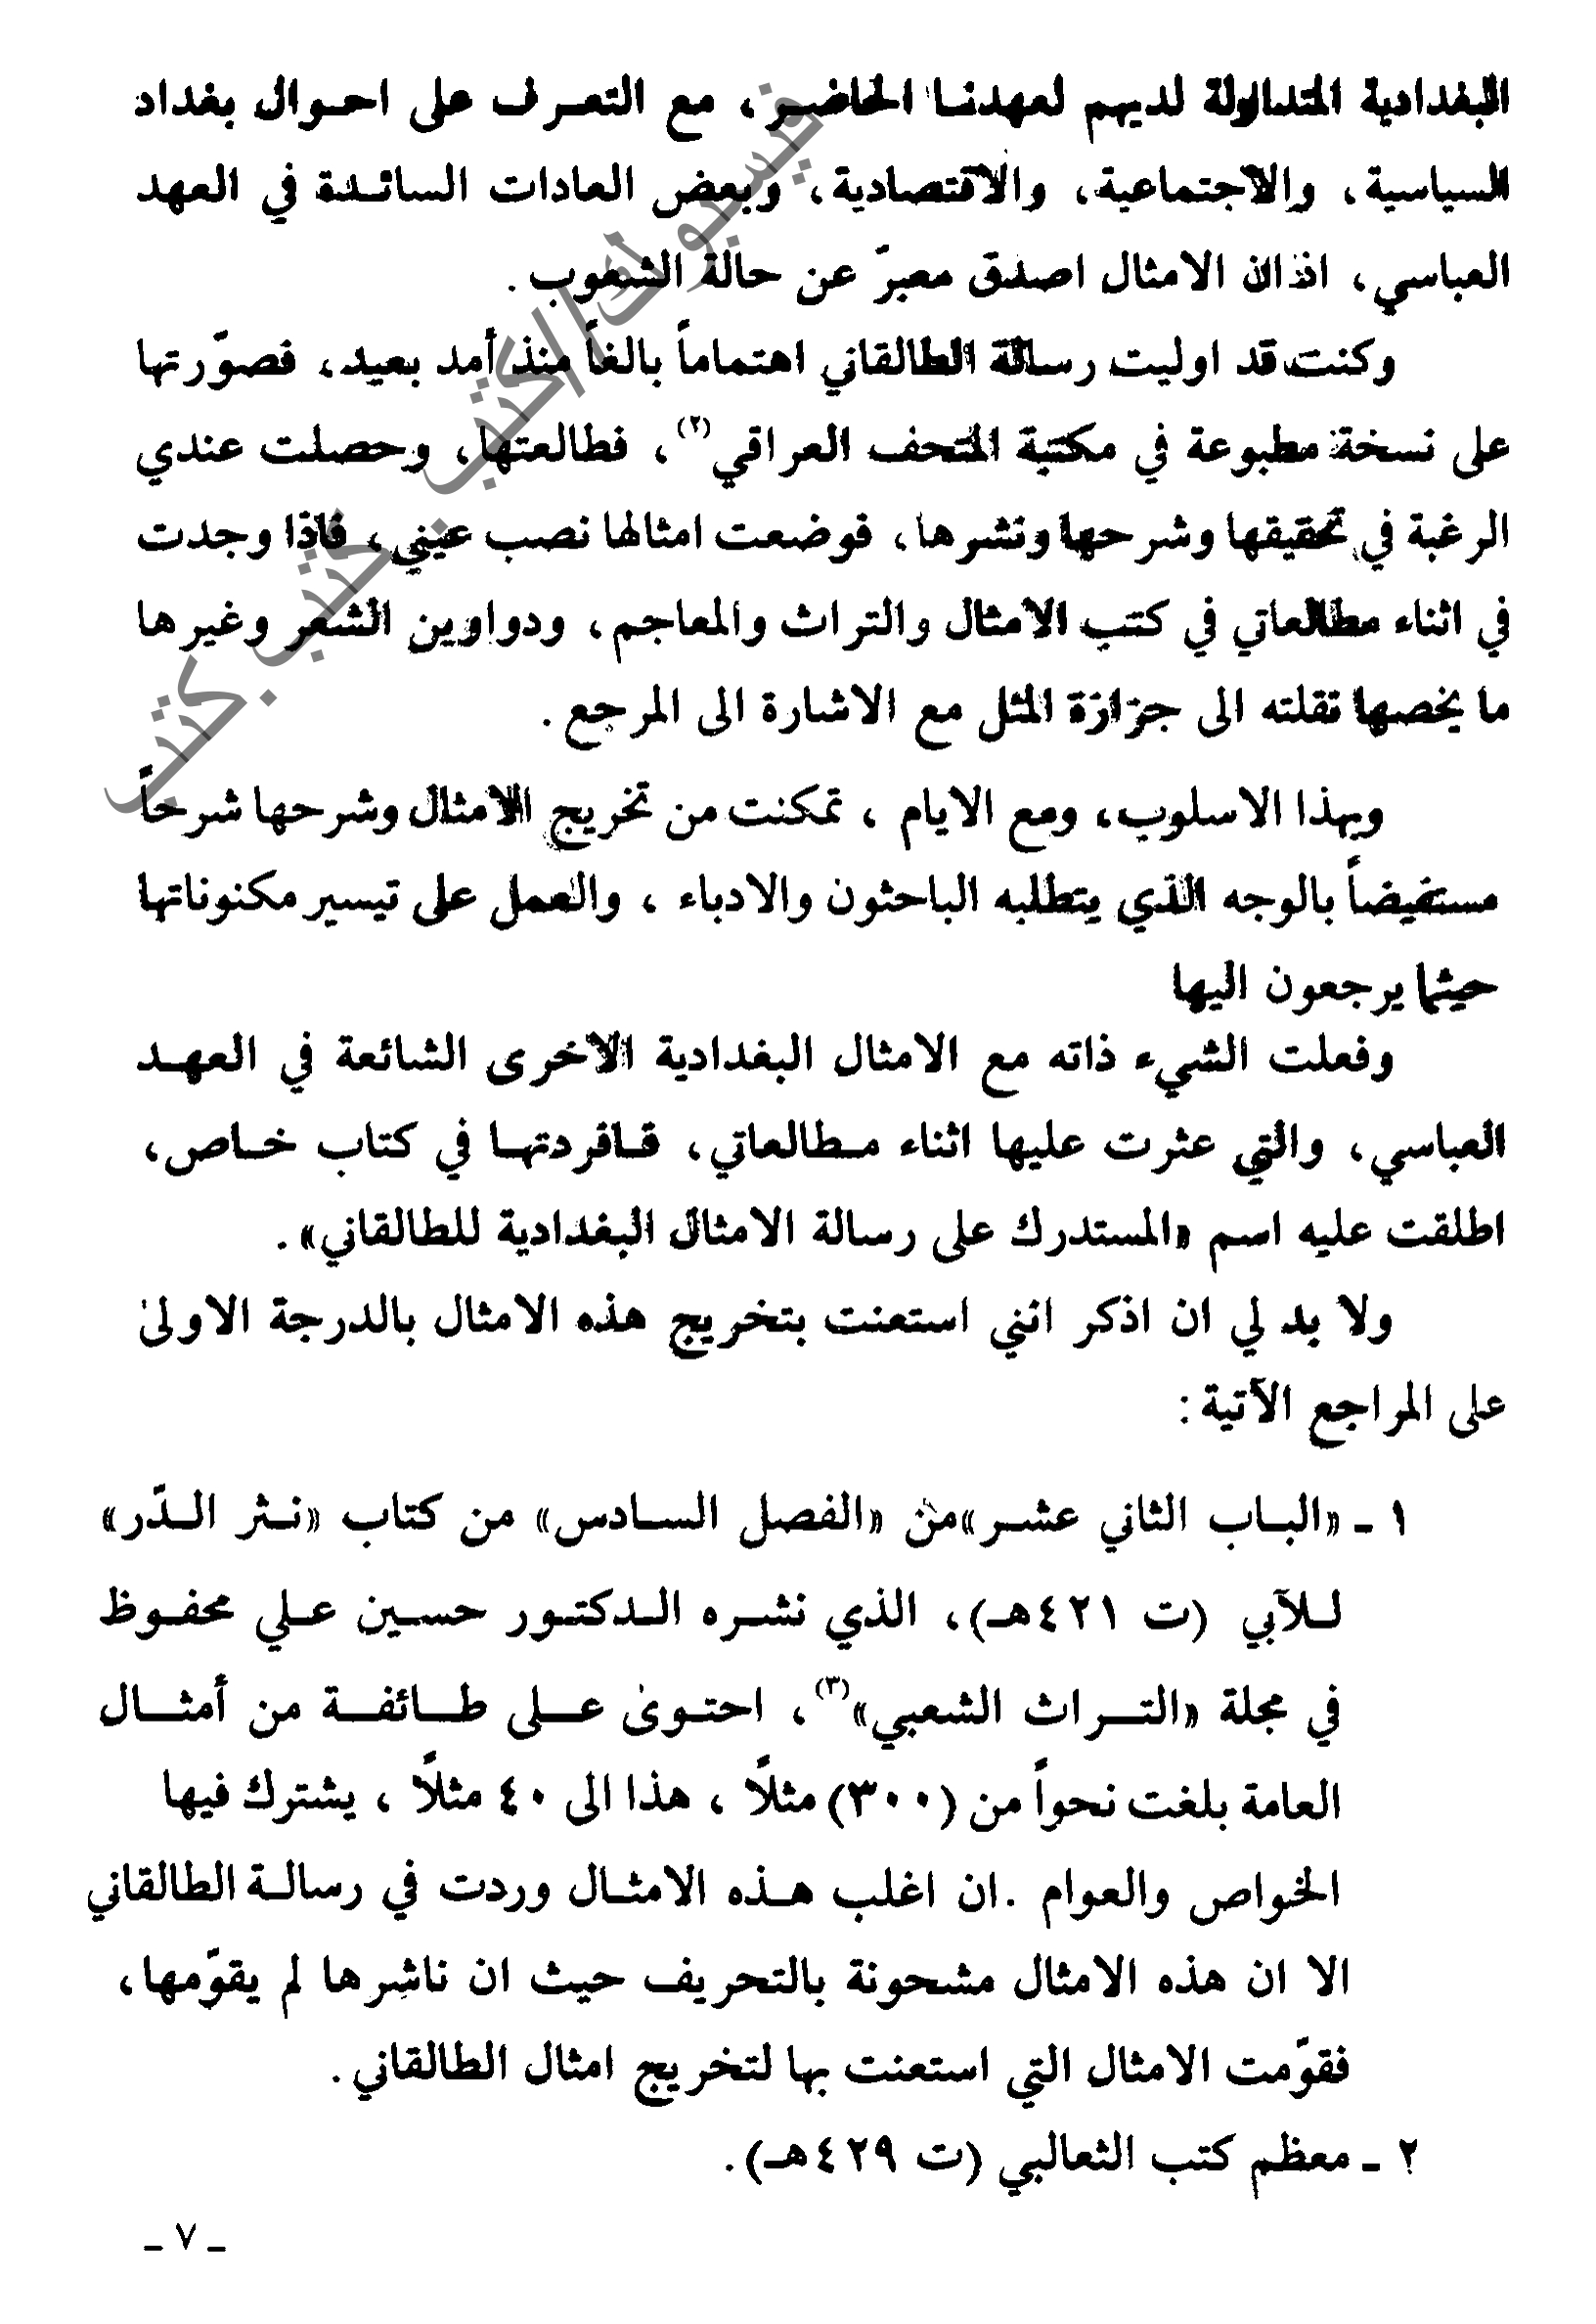 البغدادية المتداولة لديهم لعهدنا الحاضر ، مع التعرف على احوال بغداد
السياسية ، والاجتماعية ، والاقتصادية ، وبعض العادات السائدة في العهد
العباسي ، اذ ان الامثال اصدق معبرّ عن حالة الشعوب .
وكنت قد اوليت رسالة الطالقاني اهتماماً بالغاً منذ أمد بعيد ، فصوّرتها
على نسخة مطبوعة في مكتبة المتحف العراقي(٢) ، فطالعتها ، وحصلت عندي
الرغبة في تحقيقها وشرحها ونشرها ، فوضعت امثالها نصب عيني ، فاذا وجدت
في اثناء مطالعاتي في كتب الامثال والتراث والمعاجم ، ودواوين الشعر وغيرها
ما يخصها نقلته الى جزازة المثل مع الاشارة الى المرجع .
وبهذا الاسلوب ، ومع الايام ، تمكنت من تخريج الامثال وشرحها شرحاً
مستفيضاً بالوجه الذي يتطلبه الباحثون والادباء ، والعمل على تيسير مكنوناتها
حيثما يرجعون اليها
وفعلت الشيء ذاته مع الامثال البغدادية الاخرى الشائعة في العهد
العباسي ، والتي عثرت عليها اثناء مطالعاتي ، فافردتها في كتاب خاص ،
اطلقت عليه اسم «المستدرك على رسالة الامثال البغدادية للطالقاني» .
ولا بد لي ان اذكر انني استعنت بتخريج هذه الامثال بالدرجة الاولىٰ
على المراجع الآتية :
١ - «الباب الثاني عشر» من «الفصل السادس» من كتاب «نثر الدّر»
للآبي (ت ٤٢١هـ) ، الذي نشره الدكتور حسين علي محفوظ
في مجلة «التراث الشعبي»(٣) ، احتوىٰ على طائفة من أمثال
العامة بلغت نحواً من (٣٠٠) مثلًا ، هذا الى ٤٠ مثلًا ، يشترك فيها
الخواص والعوام . ان اغلب هذه الامثال وردت في رسالة الطالقاني
الا ان هذه الامثال مشحونة بالتحريف حيث ان ناشِرها لم يقوّمها ،
فقوّمت الامثال التي استعنت بها لتخريج امثال الطالقاني .
٢ - معظم كتب الثعالبي (ت ٤٢٩هـ) .
- ٧ -
فيسبوك/كتب . كتب . كتب